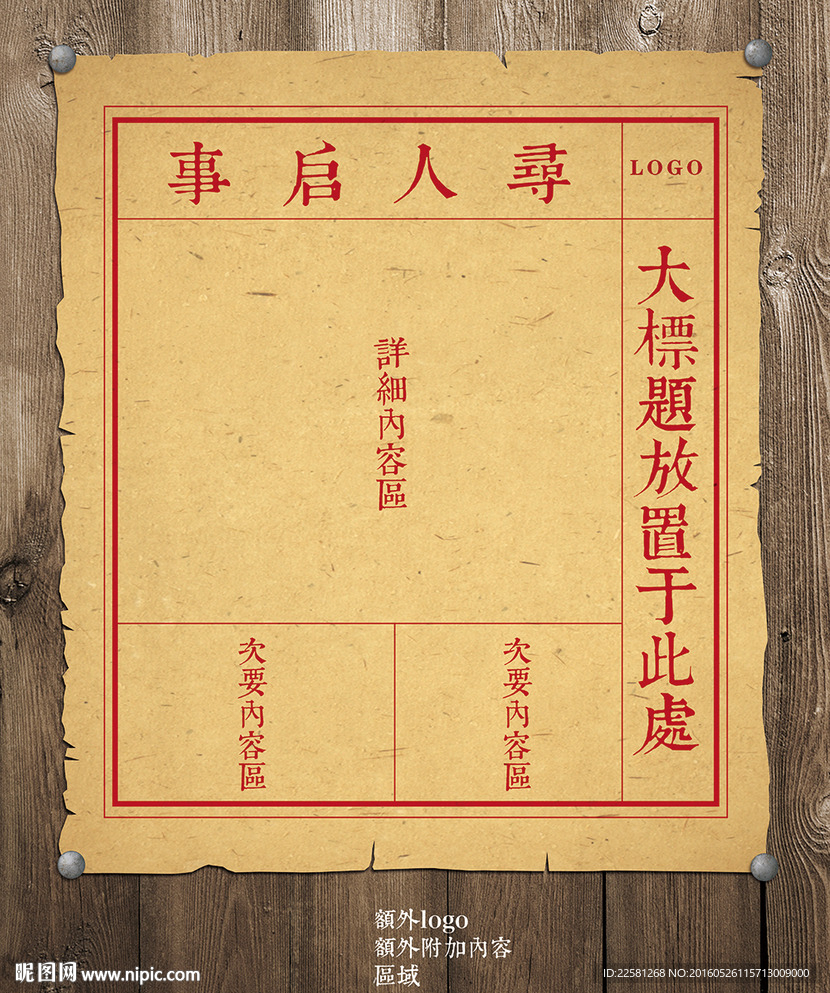 尋人启事
LOGO
大標題放置于此處
詳細內容區
次要內容區
次要內容區
額外logo
額外附加內容
區域
昵图网 www.nipic.com
ID:22581268 NO:20160526115713009000